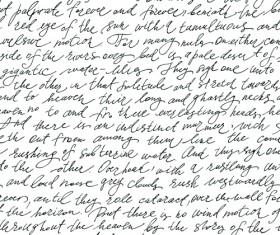 palpitate forever and forever beneath the
red eye of the sun with tumultuous and
convulsive motion. For many miles on either
side of the river's oozy bed is a pale desert of
gigantic water-lilies. They sigh one unto
the other in that solitude and stretch towards
the heaven their long and ghastly necks, a
to and fro their everlasting heads
And there is an indistinct murmur which
out from among them like the
rushing of subterrene water. And they sigh one
to the other. Overhead with a rustling
and loud noise grey clouds rush westwardly
until they role cataract over the wall
the horizon. But there is no wind
throughout the heaven by the shores of the